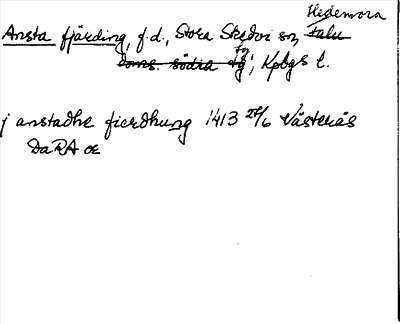 Hedemora
Ansta fjärding, f.d., Stora Skedvi sn, Falu
tg
doms. södra tg, Kpbgs l.
j anstadhe fierdhung 1413 27/6 Västerås
DaRA or